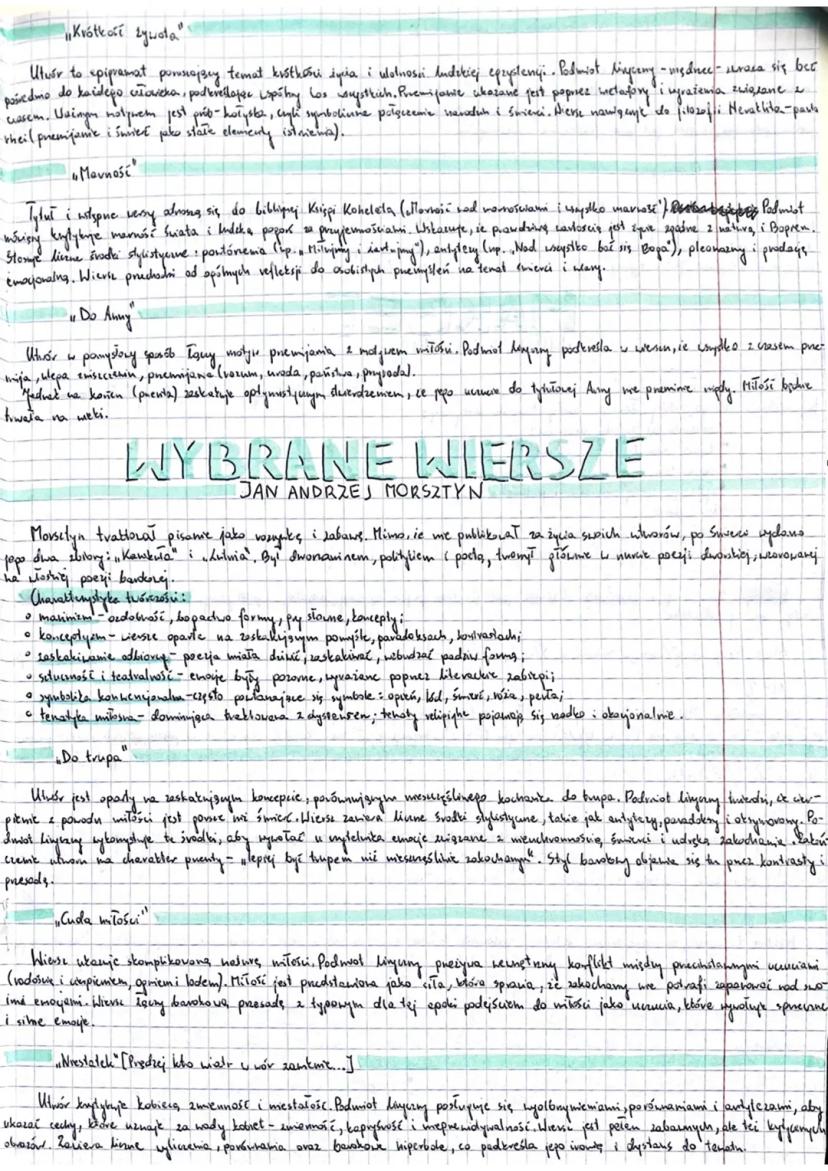 „Krótkość żywota"
Utwór to epigramat poruszający temat krótkości życia i ulotności ludzkiej egzystencji. Podmiot liryczny - mędrzec - zwraca się bez
pośrednio do każdego człowieka, podkreślając wspólny los wszystkich. Przemijanie ukazane jest poprzez metafory i wyrażenia związane z
czasem. Ważnym motywem jest grób-kołyska, czyli symboliczne połączenie narodzin i śmierci. Wiersz nawiązuje do filozofii Heraklita - panta
rhei (przemijanie i śmierć jako stałe elementy istnienia).
„Marność"
Tytuł i wstępne wersy odnoszą się do biblijnej Księgi Koheleta („Marność nad marnościami i wszystko marność") Podmiot
mówiący krytykuje marność świata i ludzką pogoń za przyjemnościami. Wskazuje, że prawdziwą wartością jest życie zgodne z naturą i Bogiem.
Stosuje liczne środki stylistyczne: powtórzenia (np. „Miłujmy i żartujmy"), antytezy (np. „Nad wszystko bać się Boga"), pleonazmy i gradację
emocjonalną. Wiersz przechodzi od ogólnych refleksji do osobistych przemyśleń na temat śmierci i wiary.
„Do Anny"
Utwór w pomysłowy sposób łączy motyw przemijania z motywem miłości. Podmiot liryczny podkreśla w wierszu, że wszystko z czasem prze-
mija, ulega zniszczeniu, przemijanie (rozum, uroda, państwa, przygoda).
Jednak na koniec (puenta) zaskakuje optymistycznym stwierdzeniem, że jego uczucie do tytułowej Anny nie przeminie nigdy. Miłość będzie
trwała na wieki.
WYBRANE WIERSZE
JAN ANDRZEJ MORSZTYN
Morsztyn traktował pisanie jako rozrywkę i zabawę. Mimo, że nie publikował za życia swoich utworów, po śmierci wydano
jego dwa zbiory: „Kanikuła" i „Lutnia". Był dworzaninem, politykiem i poetą, tworzył głównie w nurcie poezji dworskiej, wzorowanej
na włoskiej poezji barokowej.
Charakterystyka twórczości:
• marinizm - ozdobność, bogactwo formy, gry słowne, koncepty;
• konceptyzm - wiersze oparte na zaskakującym pomyśle, paradoksach, kontrastach;
• zaskakiwanie odbiorcy - poezja miała dziwić, zaskakiwać, wzbudzać podziw formą;
• sztuczność i teatralność - emocje były pozorne, wyrażane poprzez literackie zabiegi;
• symbolika konwencjonalna - często powtarzające się symbole: ogień, lód, śmierć, róża, perła;
• tematyka miłosna - dominująca traktowana z dystansem; tematy religijne pojawiają się rzadko i okazjonalnie.
„Do trupa"
Utwór jest oparty na zaskakującym koncepcie, porównującym nieszczęśliwego kochanka do trupa. Podmiot liryczny twierdzi, że cier-
pienie z powodu miłości jest gorsze niż śmierć. Wiersz zawiera liczne środki stylistyczne, takie jak antytezy, paradoksy i oksymorony. Po-
dmiot liryczny wykorzystuje te środki, aby wywołać u czytelnika emocje związane z nieuchronnością śmierci i udręką zakochania. Zakoń-
czenie utworu ma charakter puenty - „lepiej być trupem niż nieszczęśliwie zakochanym". Styl barokowy objawia się tu przez kontrasty i
przesadę.
„Cuda miłości"
Wiersz ukazuje skomplikowaną naturę miłości. Podmiot liryczny przeżywa wewnętrzny konflikt między przeciwstawnymi uczuciami
(radością i cierpieniem, ogniem i lodem). Miłość jest przedstawiona jako siła, która sprawia, że zakochany nie potrafi zapanować nad swo-
imi emocjami. Wiersz łączy barokową przesadę z typowym dla tej epoki podejściem do miłości jako uczucia, które wywołuje sprzeczne
i silne emocje.
„Niestatek" [Prędzej kto wiatr w wór zamknie...]
Utwór krytykuje kobiecą zmienność i niestałość. Podmiot liryczny posługuje się wyolbrzymieniami, porównaniami i antytezami, aby
ukazać cechy, które uznaje za wady kobiet - zmienność, kapryśność i nieprzewidywalność. Wiersz jest pełen zabawnych, ale też krytycznych
obrazów. Zawiera liczne wyliczenia, porównania oraz barokowe hiperbole, co podkreśla jego ironię i dystans do tematu.